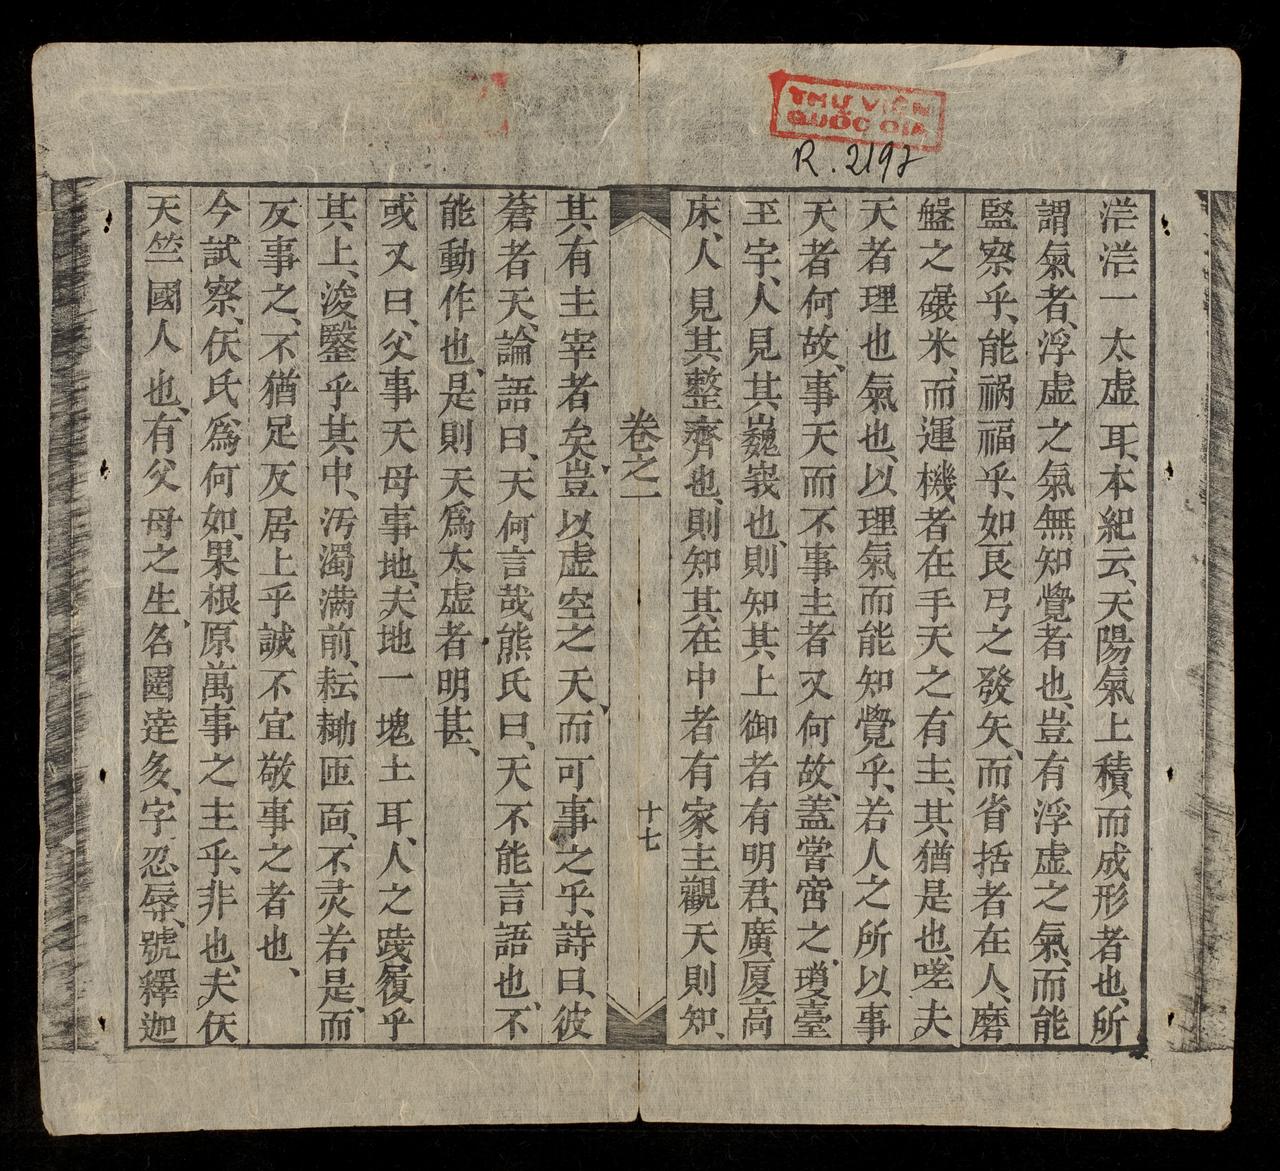 THƯ VIỆN
QUỐC GIA
R. 2197
茫茫一太虛耳、本紀云、天陽氣上積、而成形者也、所
謂氣者、浮虛之氣無知覺者也、豈有浮虛之氣、而能
監察乎、能禍福乎、如良弓之發矢、而省括者在人、磨
盤之碾米、而運機者在手、天之有主、其猶是也、嗟夫
天者理也氣也、以理氣而能知覺乎、若人之所以事
天者何故、事天而不事主者又何故、蓋嘗啻之、瓊臺
至宇、人見其巍峩也、則知其上御者有明君、廣厦高
床、人見其整齊也、則知其在中者有家主、觀天則知、
卷之一
十七
其有主宰者矣、豈以虛空之天、而可事之乎、詩曰、彼
蒼者天、論語曰、天何言哉、熊氏曰、天不能言語也、不
能動作也、是則天爲太虛者明甚、
或又曰、父事天母事地、夫地一塊土耳、人之踐履乎
其上、浚鑿乎其中、汚濁滿前、耘耡匝面、不灵若是、而
反事之、不猶足反居上乎、誠不宜敬事之者也、
今試察、仸氏爲何如、果根原萬事之主乎、非也、夫仸
天竺國人也、有父母之生、名達多、字忍辱、號釋迦